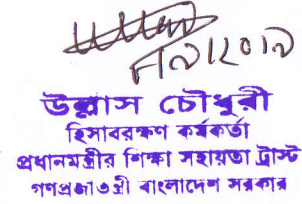 উল্লাস চৌধুরী
হিসাবরক্ষণ কর্মকর্তা
প্রধানমন্ত্রীর শিক্ষা সহায়তা ট্রাস্ট
গণপ্রজাতন্ত্রী বাংলাদেশ সরকার